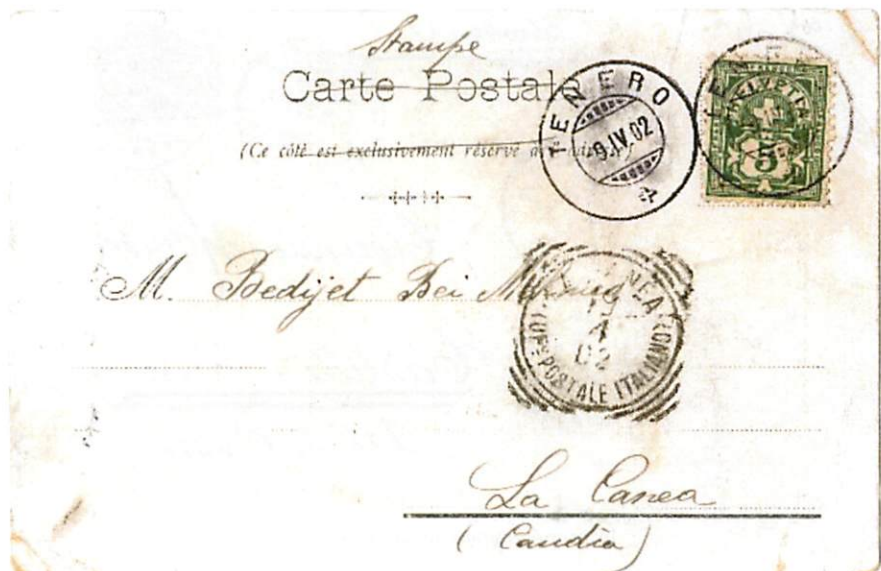 Stampe
Carte Postale
(Ce côté est exclusivement réservé à l'adresse)
TENERO
9.IV.02
HELVETIA
5
M. Bedijet Bei
CANEA
4
02
(UFF° POSTALE ITALIANO)
La Canea
(Candia)